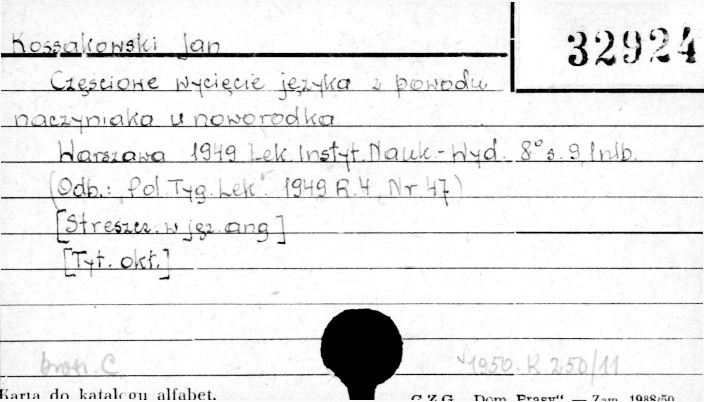 Kossakowski Jan
32924
Częściowe wycięcie języka z powodu
naczyniaka u noworodka
Warszawa 1949 Lek. Instyt. Nauk.-Wyd. 8° s. 9, 1 nlb.
(Odb.: „Pol. Tyg. Lek." 1949 R. 4, Nr 47)
[Streszcz. w jęz. ang]
[Tyt. okł.]
1950. K. 250/11
Karta do katalogu alfabet.
C.Z.G. „Dom Prasy" — Zam. 1988/50